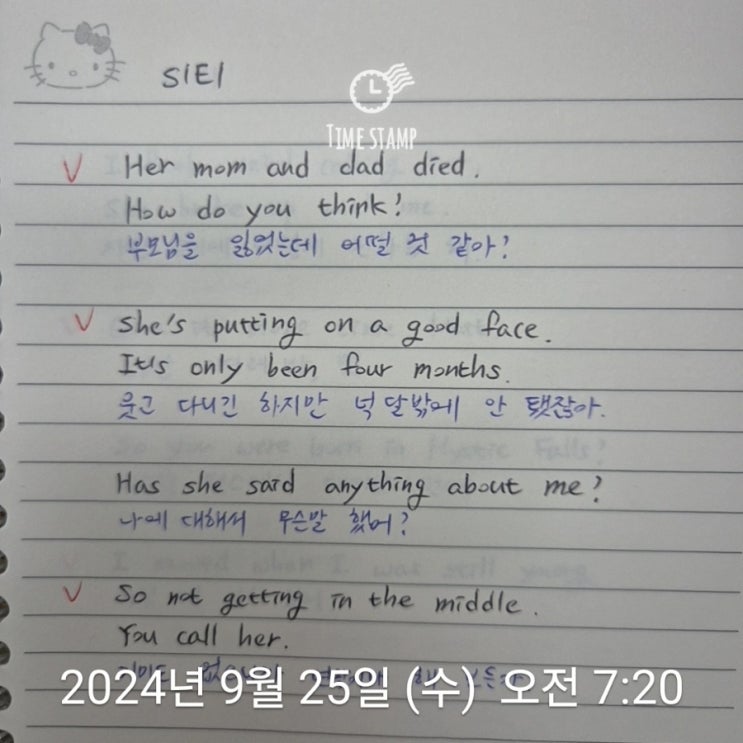 S1E1
TIME STAMP
V Her mom and dad died.
How do you think!
부모님을 잃었는데 어떨 것 같아?
V She's putting on a good face.
It's only been four months.
웃고 다니긴 하지만 넉 달밖에 안 됐잖아.
So you were born in Mystic Falls?
Has she said anything about me?
나에 대해서 무슨말 했어?
I moved when I was still young
V So not getting in the middle.
You call her.
2024년 9월 25일 (수) 오전 7:20